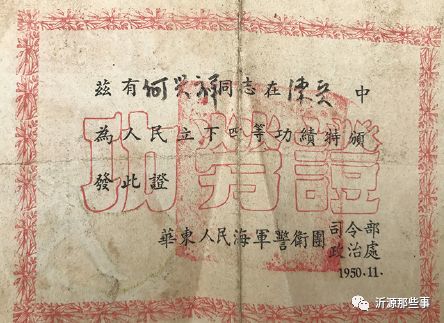 茲有何兴祥同志在練兵中
為人民立下四等功績特頒
發此證
功勞證
華東人民海軍警衛團司令部
政治處
1950.11.
沂源那些事